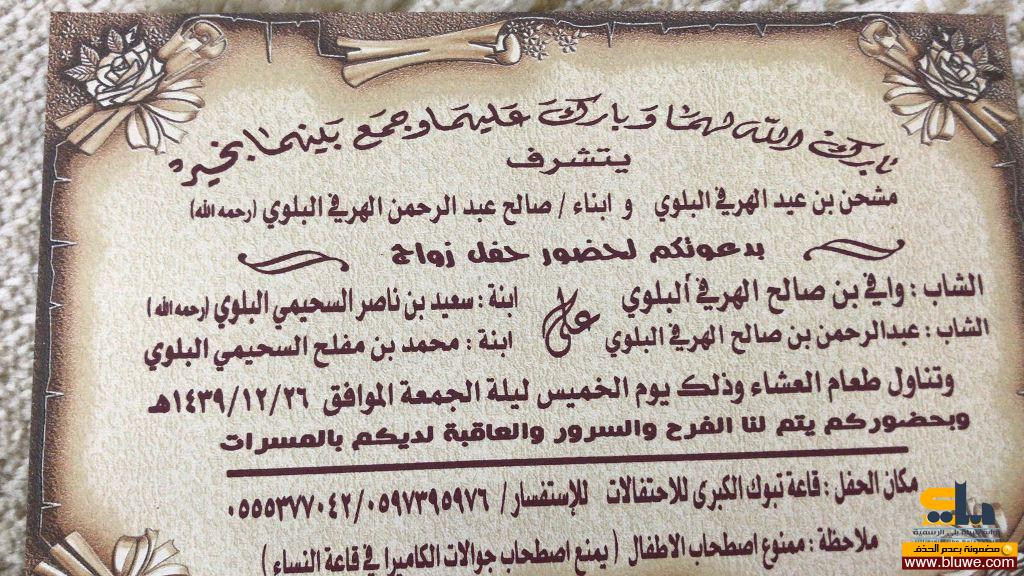 بارك الله لهما وبارك عليهما وجمع بينهما بخير
يتشرف
مشحن بن عيد الهرفي البلوي و ابناء / صالح عبد الرحمن الهرفي البلوي (رحمه الله)
بدعوتكم لحضور حفل زواج
الشاب : وافي بن صالح الهرفي البلوي على ابنة : سعيد بن ناصر السحيمي البلوي (رحمه الله)
الشاب : عبدالرحمن بن صالح الهرفي البلوي ابنة : محمد بن مفلح السحيمي البلوي
وتناول طعام العشاء وذلك يوم الخميس ليلة الجمعة الموافق ١٤٣٩/١٢/٢٦هـ
وبحضوركم يتم لنا الفرح والسرور والعاقبة لديكم بالمسرات
مكان الحفل : قاعة تبوك الكبرى للاحتفالات للإستفسار / ٠٥٩٧٣٩٥٩٧٦/٠٥٥٥٣٧٧٠٤٢
ملاحظة : ممنوع اصطحاب الاطفال ( يمنع اصطحاب جوالات الكاميرا في قاعة النساء )
بلي
مضمونة بعدم الحذف
www.bluwe.com